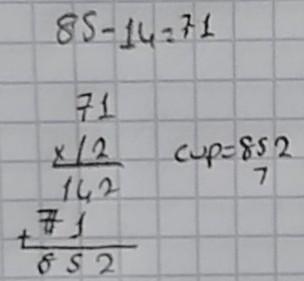 85-14=71
71
x12
142
+71
852
cup=852
7